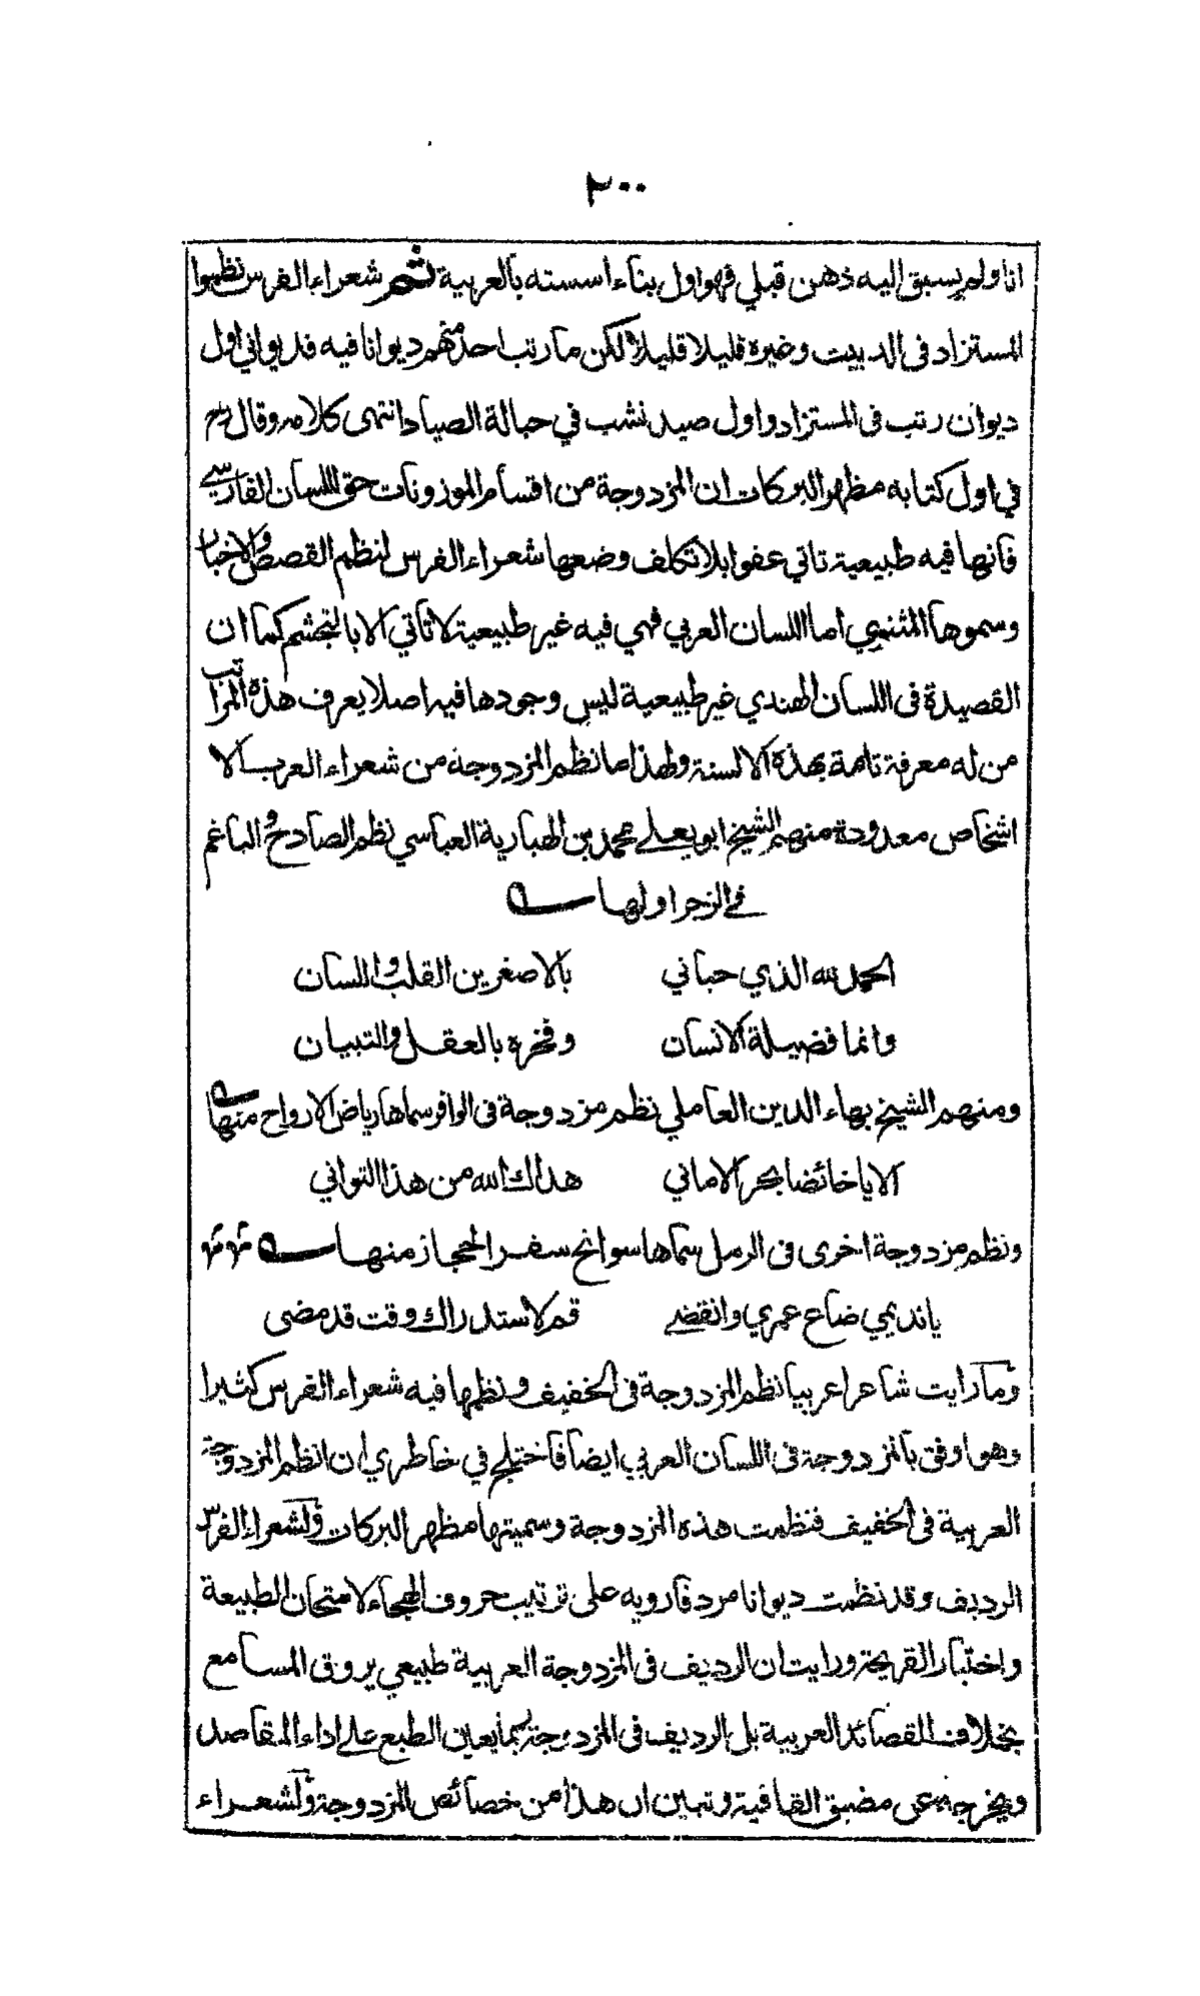 ٢٠٠
انا ولم يسبق اليه ذهن قبلي فهو اول بناء اسسته بالعربية ثم شعراء الفرس نظموا
المستزاد في الدبيت وغيره قليلا قليلا لكن ما رتب احد منهم ديوانا فيه فديواني اول
ديوان رتب في المستزاد واول صيد نشب في حبالة الصياد انتهى كلامه وقال رح
في اول كتابه مظهر البركات ان المزدوجة من اقسام الموزونات حق اللسان الفارسي
فانها فيه طبيعية تاتي عفوا بلا تكلف وضعها شعراء الفرس لنظم القصص والاخبار
وسموها المثنوي اما اللسان العربي فهي فيه غير طبيعية لا تاتي الا بالتجشم كما ان
القصيدة في اللسان الهندي غير طبيعية ليس وجودها فيه اصلا يعرف هذه المراتب
من له معرفة تامة بهذه الالسنة ولهذا ما نظم المزدوجة من شعراء العرب الا
اشخاص معدودة منهم الشيخ ابو يعلى محمد بن الهبارية العباسي نظم الصادح والباغم
في الزجر اولها
الحمد لله الذي حباني بالاصغرين القلب واللسان
وانما فضيلة الانسان وفخره بالعقل والتبيان
ومنهم الشيخ بهاء الدين العاملي نظم مزدوجة في الوافر سماها رياض الارواح منها
الا يا خائضا بحر الاماني هداك الله من هذا التواني
ونظم مزدوجة اخرى في الرمل سماها سوانح سفر الحجاز منها
يا نديمي ضاع عمري وانقضى قم لاستدراك وقت قد مضى
وما رايت شاعرا عربيا نظم المزدوجة في الخفيف ونظمها فيه شعراء الفرس كثيرا
وهو اوفق بالمزدوجة في اللسان العربي ايضا فاختلج في خاطري ان انظم المزدوجة
العربية في الخفيف فنظمت هذه المزدوجة وسميتها مظهر البركات ولشعراء الفرس
الرديف وقد نظمت ديوانا مردفا رويه على ترتيب حروف الهجاء لامتحان الطبيعة
واختبار القريحة ورايت ان الرديف في المزدوجة العربية طبيعي يروق المسامع
بخلاف القصائد العربية بل الرديف في المزدوجة ربما يعين الطبع على اداء المقاصد
ويخرجه عن مضيق القافية وتبين ان هذا من خصائص المزدوجة ولشعراء